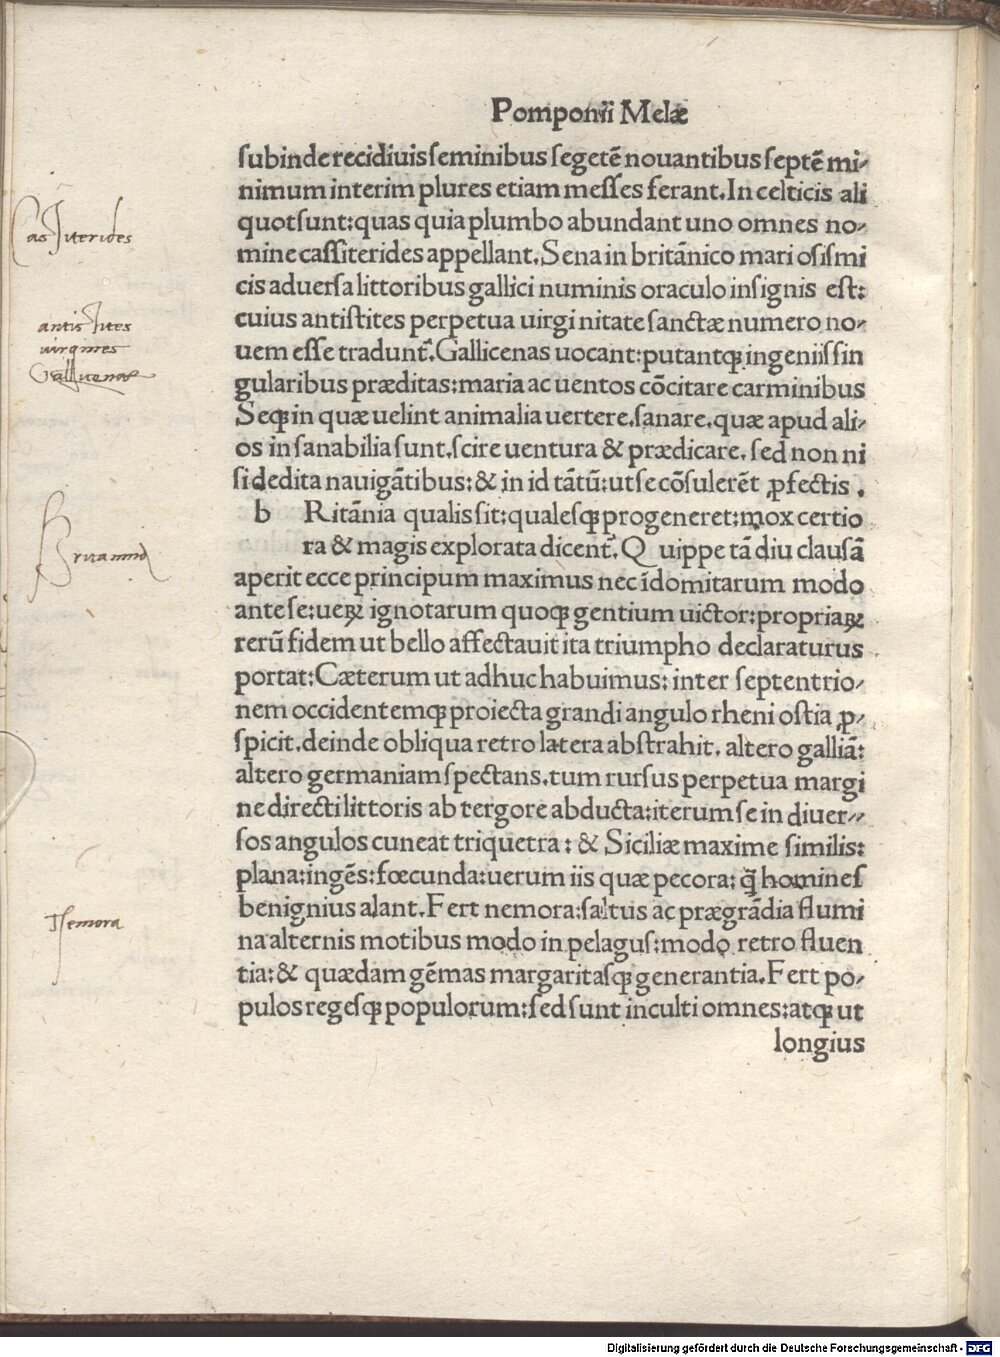 Pomponii Melæ
ſubinde recidiuis ſeminibus ſegetē nouantibus ſeptē mi-
nimum interim plures etiam meſſes ferant. In celticis ali
quot ſunt: quas quia plumbo abundant uno omnes no-
mine caſſiterides appellant. Sena in britānico mari oſiſmi
cis aduerſa littoribus gallici numinis oraculo inſignis est:
cuius antiſtites perpetua uirginitate ſanctæ numero no-
uem eſſe tradunt᷑. Gallicenas uocant: putantqꝫ ingeniis ſin
gularibus præditas: maria ac uentos cōcitare carminibus
Seqꝫ in quæ uelint animalia uertere. ſanare. quæ apud ali-
os inſanabilia ſunt. ſcire uentura & prædicare. ſed non ni
ſi dedita nauigātibus: & in id tātū: ut ſe cōſulerēt ꝓfectis.
b Ritānia qualis ſit: qualeſqꝫ progeneret: mox certio
ra & magis explorata dicent᷑. Q uippe tā diu clauſā
aperit ecce principum maximus nec īdomitarum modo
ante ſe: ueꝝ ignotarum quoqꝫ gentium uictor: propriaꝝ
rerū fidem ut bello affectauit ita triumpho declaraturus
portat: Cæterum ut adhuc habuimus: inter ſeptentrio-
nem occidentemqꝫ proiecta grandi angulo rheni oſtia ꝓ-
ſpicit. deinde obliqua retro latera abſtrahit. altero galliā:
altero germaniam ſpectans. tum rurſus perpetua margi
ne directi littoris ab tergore abducta: iterum ſe in diuer-
ſos angulos cuneat triquetra: & Siciliæ maxime ſimilis:
plana: ingēs: fœcunda: uerum iis quæ pecora: q̄ homineſ
benignius alant. Fert nemora: ſaltus ac prægrādia flumi
na alternis motibus modo in pelaguſ: modo retro fluen
tia: & quædam gēmas margaritaſqꝫ generantia. Fert po-
pulos regeſqꝫ populorum: ſed ſunt inculti omnes: atqꝫ ut
longius
Casſiterides
antiſtites
uirgines
Gallicenae
Nemora
Digitalisierung gefördert durch die Deutsche Forschungsgemeinschaft - DFG